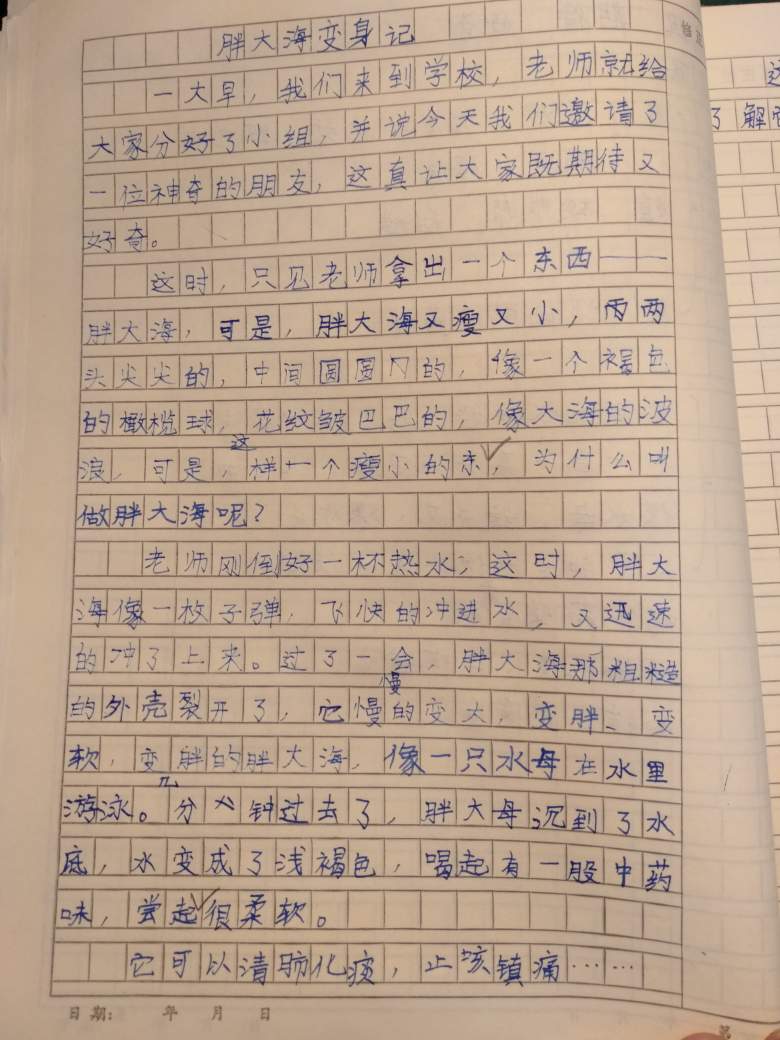 胖大海变身记
一大早，我们来到学校，老师就给
大家分好了小组，并说今天我们邀请了
一位神奇的朋友，这真让大家既期待又
好奇。
这时，只见老师拿出一个东西——
胖大海，可是，胖大海又瘦又小，两两
头尖尖的，中间圆圆的，像一个褐色
的橄榄球，花纹皱巴巴的，像大海的波
浪，可是，这样一个瘦小的东，为什么叫
做胖大海呢？
老师刚倒好一杯热水，这时，胖大
海像一枚子弹，飞快的冲进水，又迅速
的冲了上来。过了一会，胖大海那粗糙
的外壳裂开了，它慢慢的变大，变胖、变
软，变胖的胖大海，像一只水母在水里
游泳。几分钟过去了，胖大母沉到了水
底，水变成了浅褐色，喝起有一股中药
味，尝起很柔软。
它可以清肺化痰，止咳镇痛……
日期： 年 月 日
了解